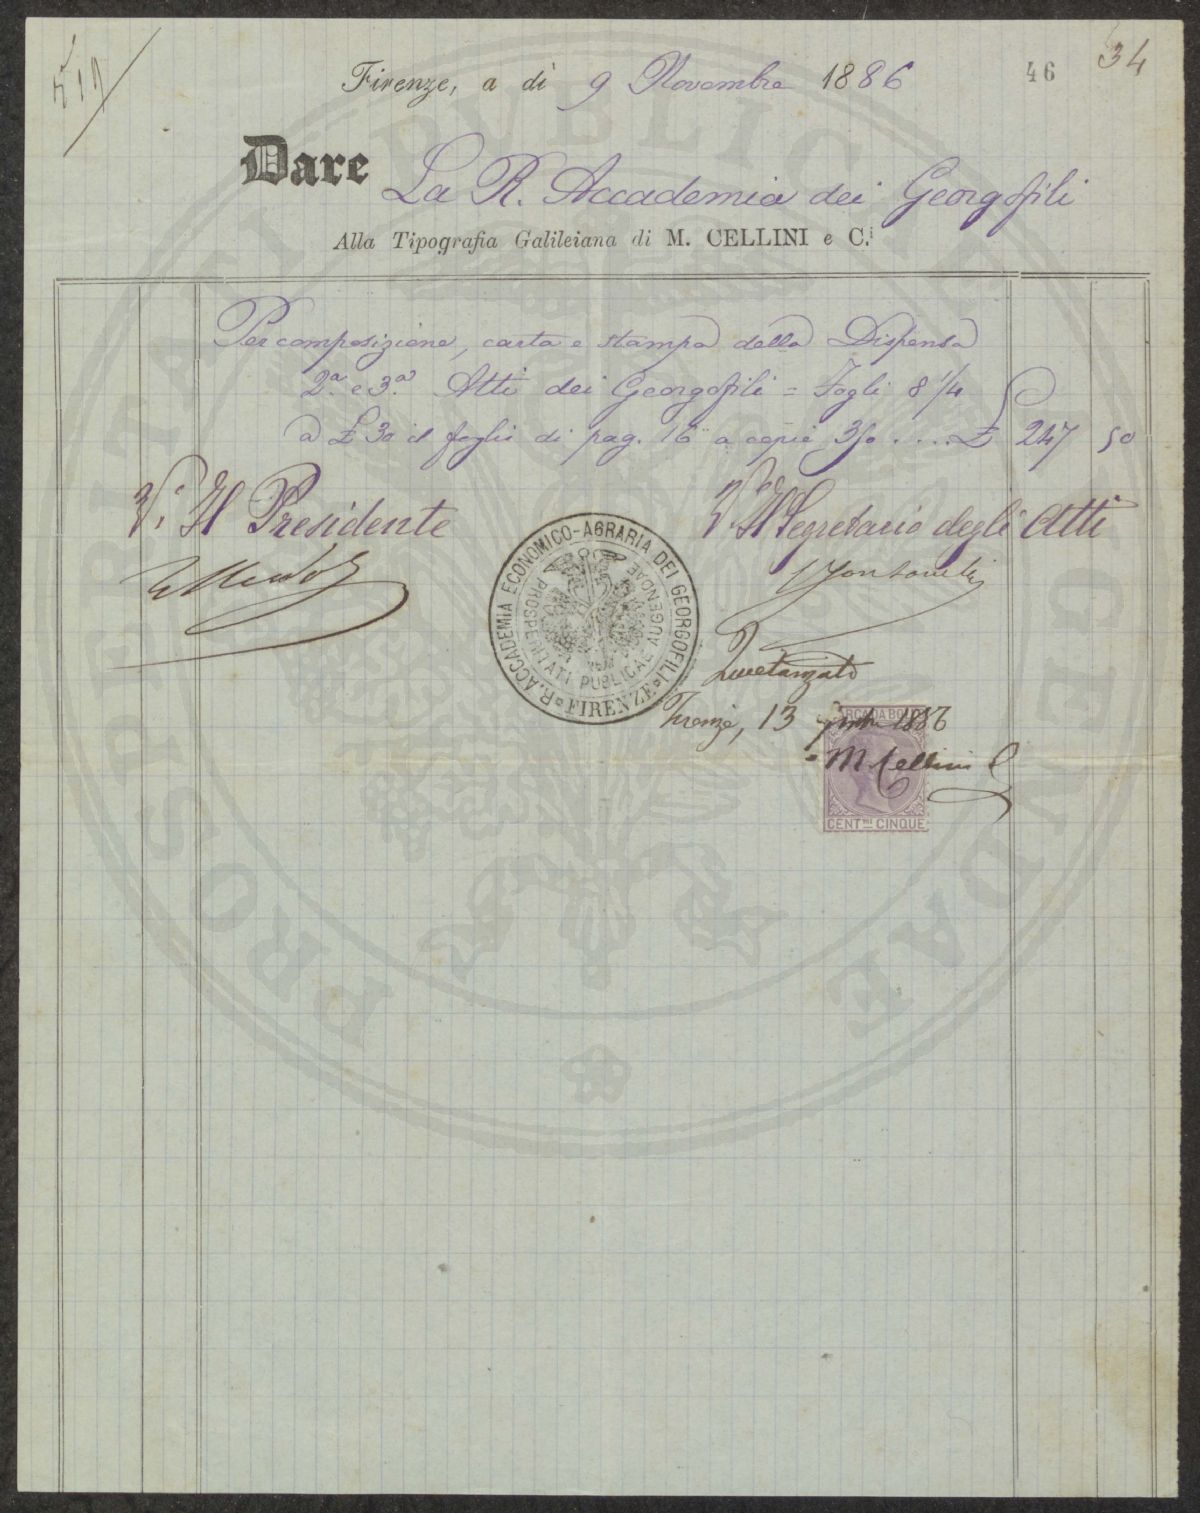 Firenze, a dì 9 Novembre 1886
46
34
Dare La R. Accademia dei Georgofili
Alla Tipografia Galileiana di M. CELLINI e C.i
Per composizione, carta e stampa della Dispensa
2ª e 3ª. Atti dei Georgofili = Fogli 8 1/4
a £ 30 il foglio di pag. 16 a copie 350 .... £ 247 50
V.° Il Presidente
V.° Il Segretario degli Atti
R. ACCADEMIA ECONOMICO-AGRARIA DEI GEORGOFILI
FIRENZE
PROSPERITATI PUBLICAE AUGENDAE
Quetanzato
Firenze, 13 1886
M Cellini C
MARCA DA BOLLO
CENT.MI CINQUE
PROSPERITATI PUBLICAE AUGENDAE